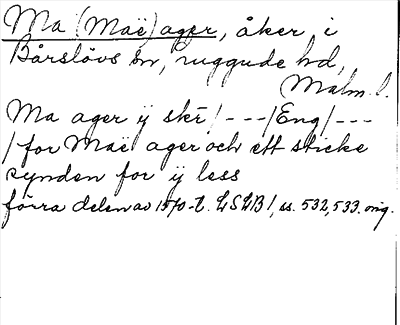 Ma (Maë)ager, åker i
Bårslövs sn, Luggude hd,
Malm. l.
Ma ager ÿ skē / --- / Eng / ---
/ for Maë ager och ett sticke
synden for ÿ less
förra delen av 1570-t. LSLB 1, ss. 532, 533. orig.